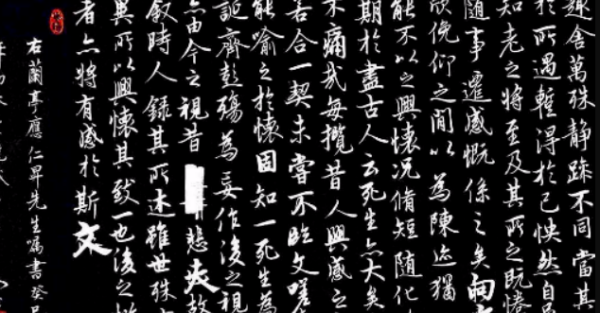 趣舍萬殊靜躁不同當其
於所遇暫得於己怏然自
知老之將至及其所之既惓
隨事遷感慨係之矣向
欣俛仰之間以為陳迹猶
能不以之興懷況脩短隨化
期於盡古人云死生亦大矣
不痛哉每攬昔人興感之
若合一契未嘗不臨文嗟
能喻之於懷固知一死生為
誕齊彭殤為妄作後之視
亦由今之視昔悲夫故
敘時人錄其所述雖世殊
異所以興懷其致一也後之
者亦將有感於斯文
右蘭亭應仁昇先生囑書癸